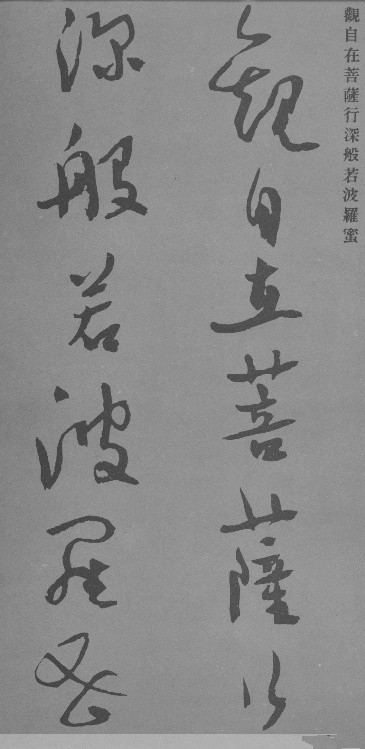 觀自在菩薩行深般若波羅蜜
觀自在菩薩行
深般若波羅蜜